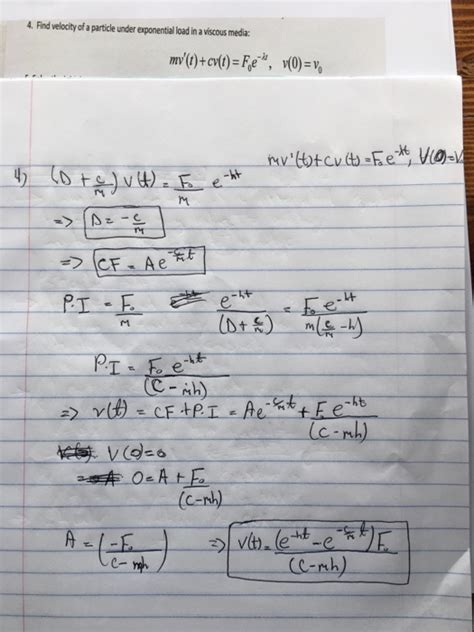 4. Find velocity of a particle under exponential load in a viscous media:
mv'(t)+cv(t)=F₀e^{-λt}, v(0)=v₀
mv'(t)+cv(t)=F₀e^{-λt}, V(0)=V
4) (D + c/m) v(t) = F₀/m e^{-ht}
=> D = -c/m
=> CF = Ae^{-c/m t}
P.I = F₀/m e^{-ht}/(D + c/m) = F₀e^{-ht}/m(c/m - h)
P.I = F₀e^{-ht}/(C-mh)
=> v(t) = CF + P.I = Ae^{-c/m t} + F e^{-ht}/(C-mh)
V(0)=0
0=A+F₀/(C-mh)
A = (-F₀/C-mh) => V(t)=(e^{-ht}-e^{-c/m t})F₀/(C-mh)